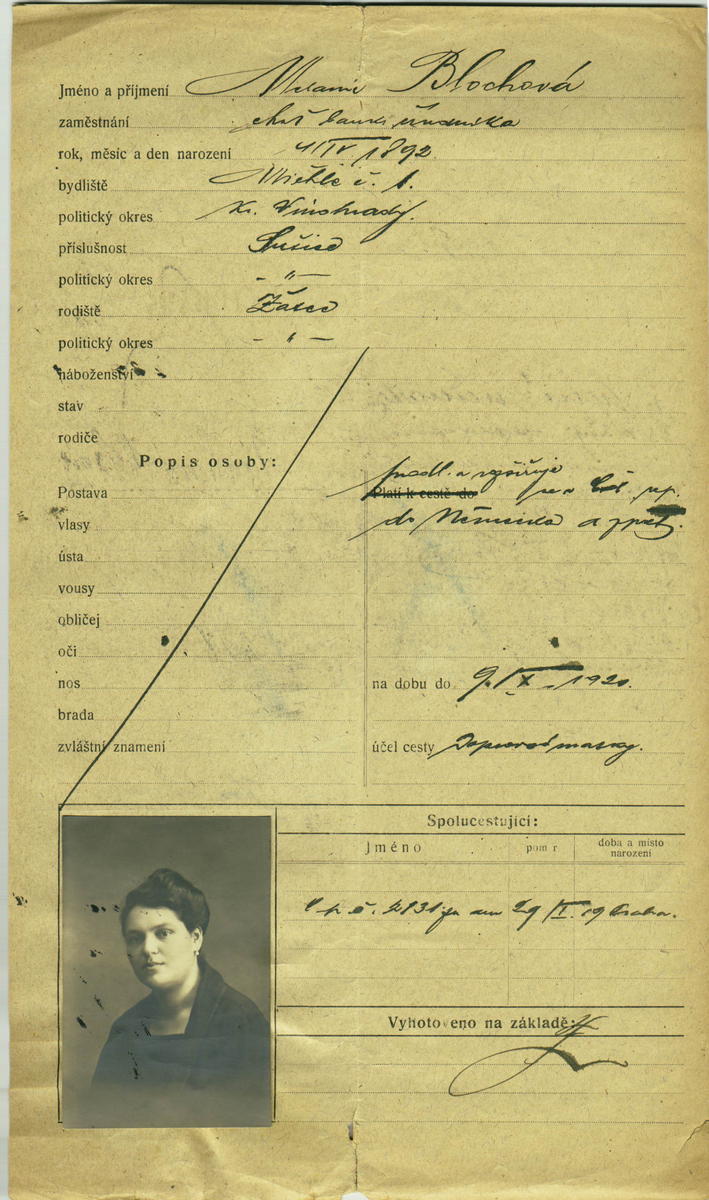 Jméno a příjmení Melanie Blochová
zaměstnání choť úředníka
rok, měsíc a den narození 4/IV 1892
bydliště Michle č. 1.
politický okres Kr. Vinohrady.
příslušnost Sušice
politický okres - " -
rodiště Žatec
politický okres - " -
náboženství
stav
rodiče
Popis osoby:
Postava
vlasy
ústa
vousy
obličej
oči
nos
brada
zvláštní znamení
prodl. a rozšiřuje
Platí k cestě do se z rep.
do Německa a zpět.
na dobu do 9. IX. 1920.
účel cesty Doprovod matky.
Spolucestující:
Jméno
poměr
doba a místo
narození
č. 2131 29 19 Praha.
Vyhotoveno na základě: